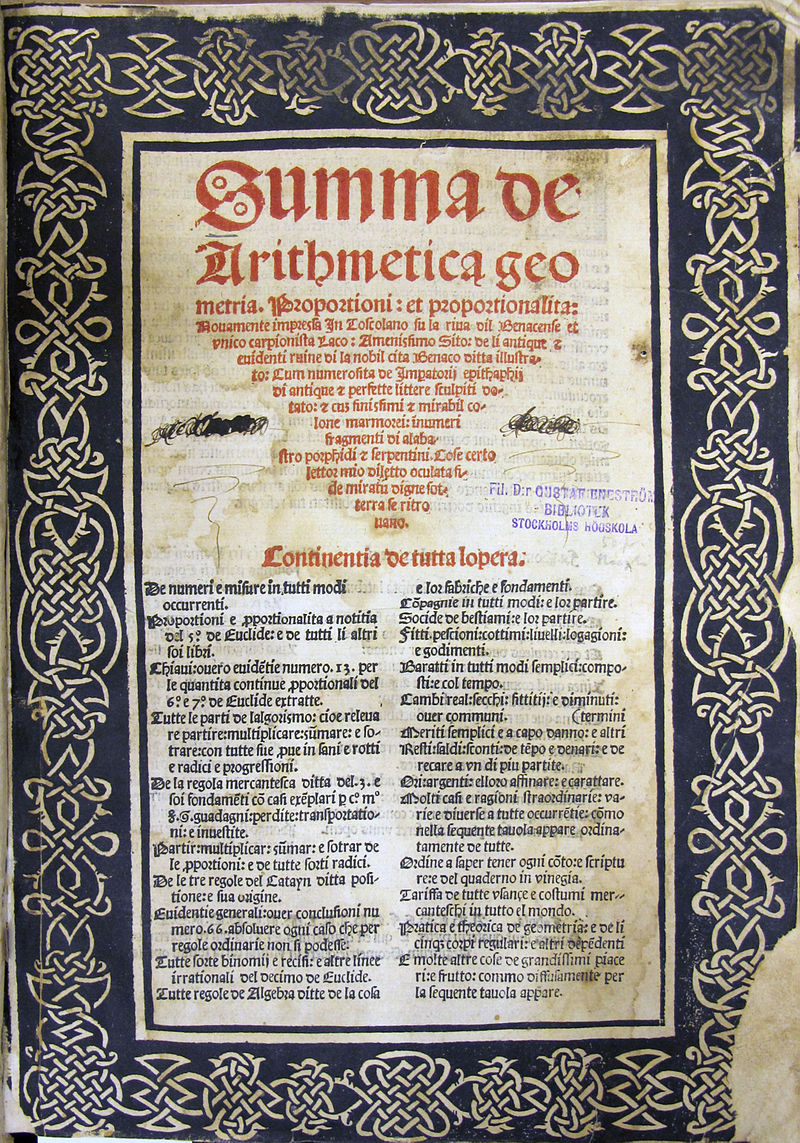 Summa de
Arithmetica geo
metria. Proportioni: et proportionalita:
Nouamente impressa In Toscolano su la riua dil Benacense et
vnico carpionista Laco: Amenissimo Sito: de li antique &
euidenti ruine di la nobil cita Benaco ditta illustra-
to: Cum numerosita de Impatorij epithaphij
di antique & perfette littere sculpiti do-
tato: & cus finissimi & mirabil co-
lone marmorei: inumeri
fragmenti di alaba-
stro porphidi & serpentini. Cose certo
lettor mio diletto oculata fi-
de miratu digne sot-
terra se ritro
uano.
Fil. D:r GUSTAF ENESTRÖM
BIBLIOTEK
STOCKHOLMS HÖGSKOLA
Continentia de tutta lopera:
De numeri e misure in tutti modi
occurrenti.
Proportioni e ꝓportionalita a notitia
del 5º. de Euclide: e de tutti li altri
soi libri.
Chiaui: ouero euidẽtie numero. 13. per
le quantita continue ꝓportionali del
6º. e 7º. de Euclide extratte.
Tutte le parti de lalgorismo: cioe releua
re partire: multiplicare: sũmare: e so-
trare: con tutte sue ꝓue in sani e rotti
e radici e progressioni.
De la regola mercantesca ditta del. 3. e
soi fondamẽti cõ casi exẽplari ꝑ cº. mº
guadagni: perdite: transportatio-
ni: e inuestite.
Partir: multiplicar: sũmar: e sotrar de
le ꝓportioni: e de tutte sorti radici.
De le tre regole del Catayn ditta posi-
tione: e sua origine.
Euidentie generali: ouer conclusioni nu
mero. 66. absoluere ogni caso che per
regole ordinarie non si podesse:
Tutte sorte binomij e recisi: e altre linee
irrationali del decimo de Euclide.
Tutte regole de Algebra ditte de la cosa
e lor fabriche e fondamenti.
Cõpagnie in tutti modi: e lor partire.
Socide de bestiami: e lor partire.
Fitti: pescioni: cottimi: liuelli: logagioni:
e godimenti.
Baratti in tutti modi semplici: compo-
sti: e col tempo.
Cambi real: secchi: fittitij: e diminuti:
ouer communi. (termini
Meriti semplici e a capo danno: e altri
Resti: saldi: sconti: de tẽpo e denari: e de
recare a vn di piu partite.
Ori: argenti: e lloro affinare: e carattare.
Molti casi e ragioni straordinarie: va-
rie e diuerse a tutte occurrẽtie: cõmo
nella sequente tauola appare ordina-
tamente de tutte.
Ordine a saper tener ogni cõto: e scriptu
re: e del quaderno in vinegia.
Tariffa de tutte vsançe e costumi mer-
canteschi in tutto el mondo.
Pratica e theorica de geometria: e de li
cinqȝ corpi regulari: e altri depẽdenti
E molte altre cose de grandissimi piace
ri: e frutto: commo diffusamente per
la sequente tauola appare.